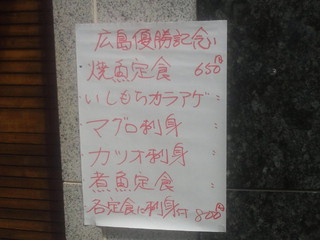 広島優勝記念
焼魚定食 650円
いしもちカラアゲ 〃
マグロ刺身 〃
カツオ刺身 〃
煮魚定食 〃
各定食に刺身付 800円